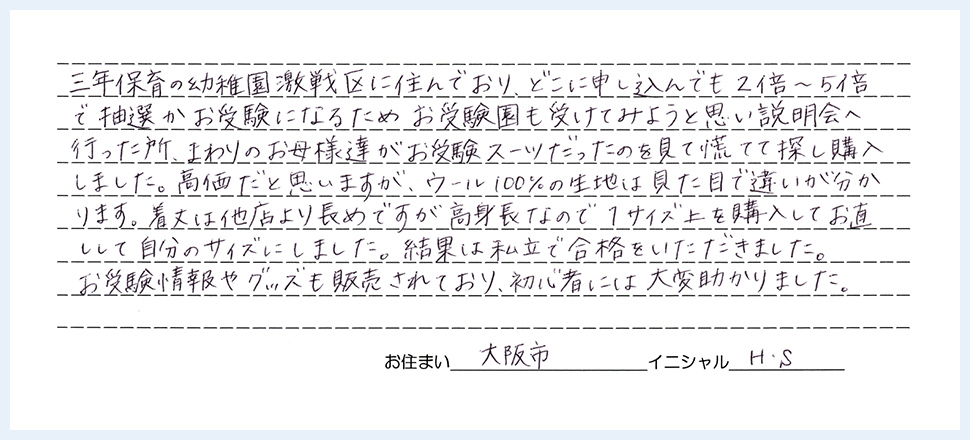 三年保育の幼稚園激戦区に住んでおり、どこに申し込んでも2倍〜5倍
で抽選かお受験になるためお受験園も受けてみようと思い説明会へ
行った所、まわりのお母様達がお受験スーツだったのを見て慌てて探し購入
しました。高価だと思いますが、ウール100%の生地は見た目で違いが分か
ります。着丈は他店より長めですが高身長なので1サイズ上を購入してお直
しして自分のサイズにしました。結果は私立で合格をいただきました。
お受験情報やグッズも販売されており、初心者には大変助かりました。
お住まい 大阪市 イニシャル H.S